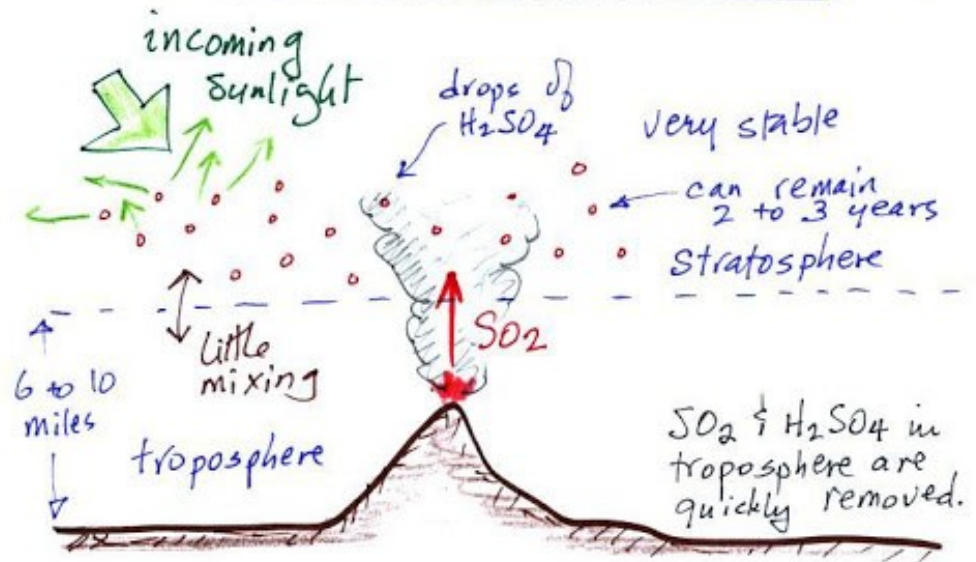 incoming
sunlight
drops of
H2SO4
very stable
can remain
2 to 3 years
stratosphere
SO2
little
mixing
6 to 10
miles
troposphere
SO2 & H2SO4 in
troposphere are
quickly removed.